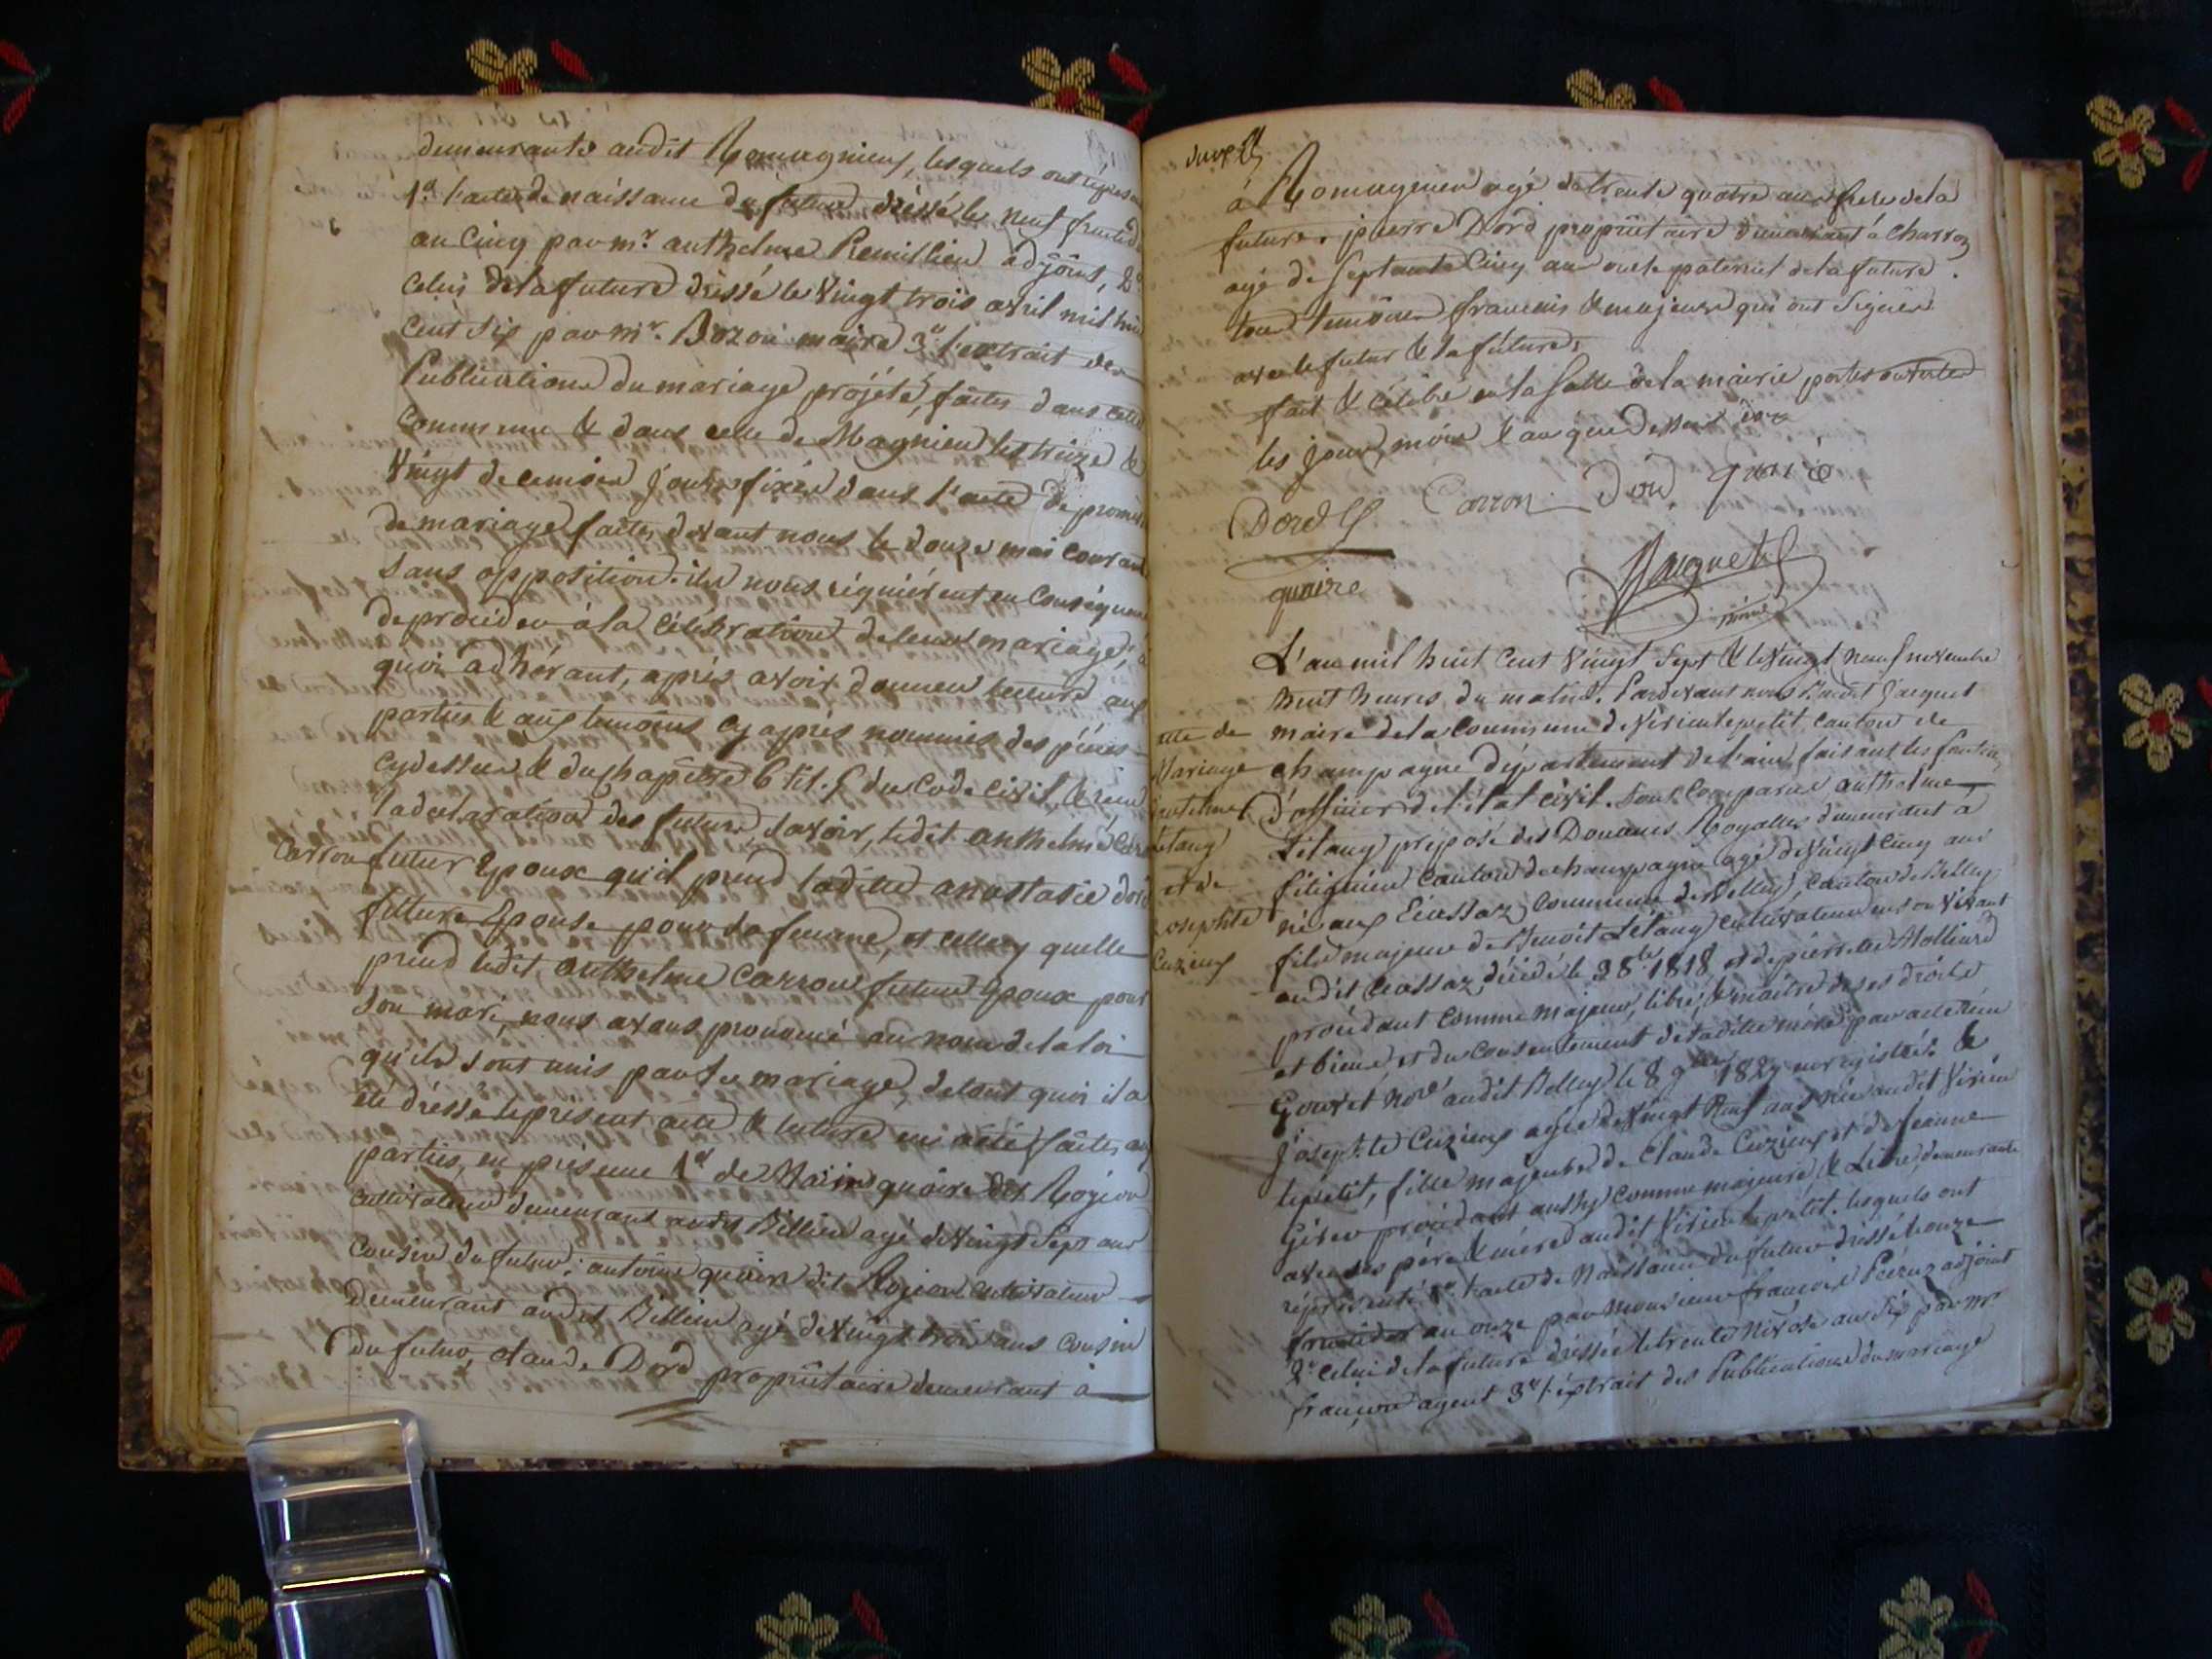 demeurants audit Romagnieu, lesquels ont
1.º l'acte de naissance du futur dréssé le neuf
an Cinq par m.r anthelme Remillieu adjoint, 2º
Celui de la future dréssé le vingt trois avril mil huit
Cent Six par m.r Bozon maire 3º l'extrait des
Publications du mariage projété, faites dans cette
Commune & dans celle de Magnieu les treize &
vingt de ce mois jours fixés dans l'acte de
de mariage faites devant nous le douze mai Courant
Sans opposition. ils nous réquiérent en Conséquence
de procéder à la Célébration de leur mariage, à
quoi adhérant, aprés avoir donnéé lecture aux
parties & aux temoins cy aprés nommés des piéces
cydessus & du chapitre 6 tit. 5 du Code Civil, &
la declaration des futurs, Savoir, ledit anthelme
Carron futur Epoux qu'il prend ladite anastasie dord
future Epouse pour Sa femme, et celle cy quelle
prend ledit anthelme Carron futur Epoux pour
Son mari, nous avons prononcé au nom de la loi
qu'ils Sont unis par le mariage, de tout quoi il a
été dréssé le présent acte & lecture en a été faites aux
parties, en présence 1º de quaire dit Rogeon
cultivateur demeurant audit Billieu agé de vingt Sept ans
Cousin du futur, antoine quaire dit Rogeon cultivateur
demeurant audit Billieu agé de vingt trois ans Cousin
du futur, claude Dord propriétaire demeurant à
à Romagnieu agé de trente quatre ans frere de la
future. pierre Dord propriétaire demeurant à Charroz
agé de Septante Cinq ans oncle paternel de la future.
tous temoins francais & majeurs qui ont Signés
avec le futur & la future.
fait & célébré en la Salle de la mairie portes ouvertes
les jour, mois & an que dessus
Dord Carron Dord quaire
quaire Jacquet
maire
L'an mil huit Cent vingt Sept & le vingt neuf novembre
huit heures du matin. Pardevant nous Benoit Jacquet
maire de la Commune de virieu le petit canton de
champagne département de l'ain faisant les fonctions
d'officier de l'état civil. Sont Comparus anthelme
Létang préposé des Douanes Royalles demeurant à
Canton de champagne agé de vingt Cinq ans
né aux Ecassaz Commune de Belley, Canton de Belley
fils majeur de Benoit Létang cultivateur en son vivant
audit Ecassaz décédé le 1818 et de pierrette Molliard
procédant comme majeur, libre, & maitre de ses droits
et biens, et du consentement de ladite mére par acte
Gouvet not.e audit Belley le 8 9bre 1827 enregistré. &
Josephte Cuzieux agée de vingt Neuf ans née audit virieu
le petit, fille majeure de Claude Cuzieux et de Jeanne
procédant aussy comme majeure & Libre, demeurante
avec ses pére & mére audit Virieu le petit. lesquels ont
réprésenté 1º l'acte de Naissance du futur dréssé le onze
fructidor an onze par monsieur françois adjoint
2º Celui de la future dréssé le trente Nivose an Six par m.r
françon agent 3º l'éxtrait des Publications du mariage
acte de
Mariage
anthelme
Létang
et de
Josephte
Cuzieux